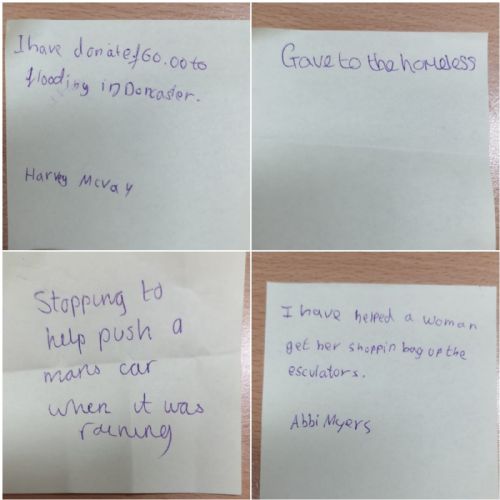 I have donate £60.00 to
flooding in Doncaster.
Harvey McVay
Gave to the homeless
Stopping to
help push a
mans car
when it was
raining
I have helped a woman
get her shoppin bag up the
esculators.
Abbi Myers